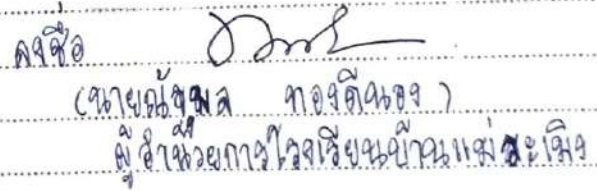 ลงชื่อ
(นายณัฐพล ทองดีนอง)
ผู้อำนวยการโรงเรียนบ้านแม่สะเมิง